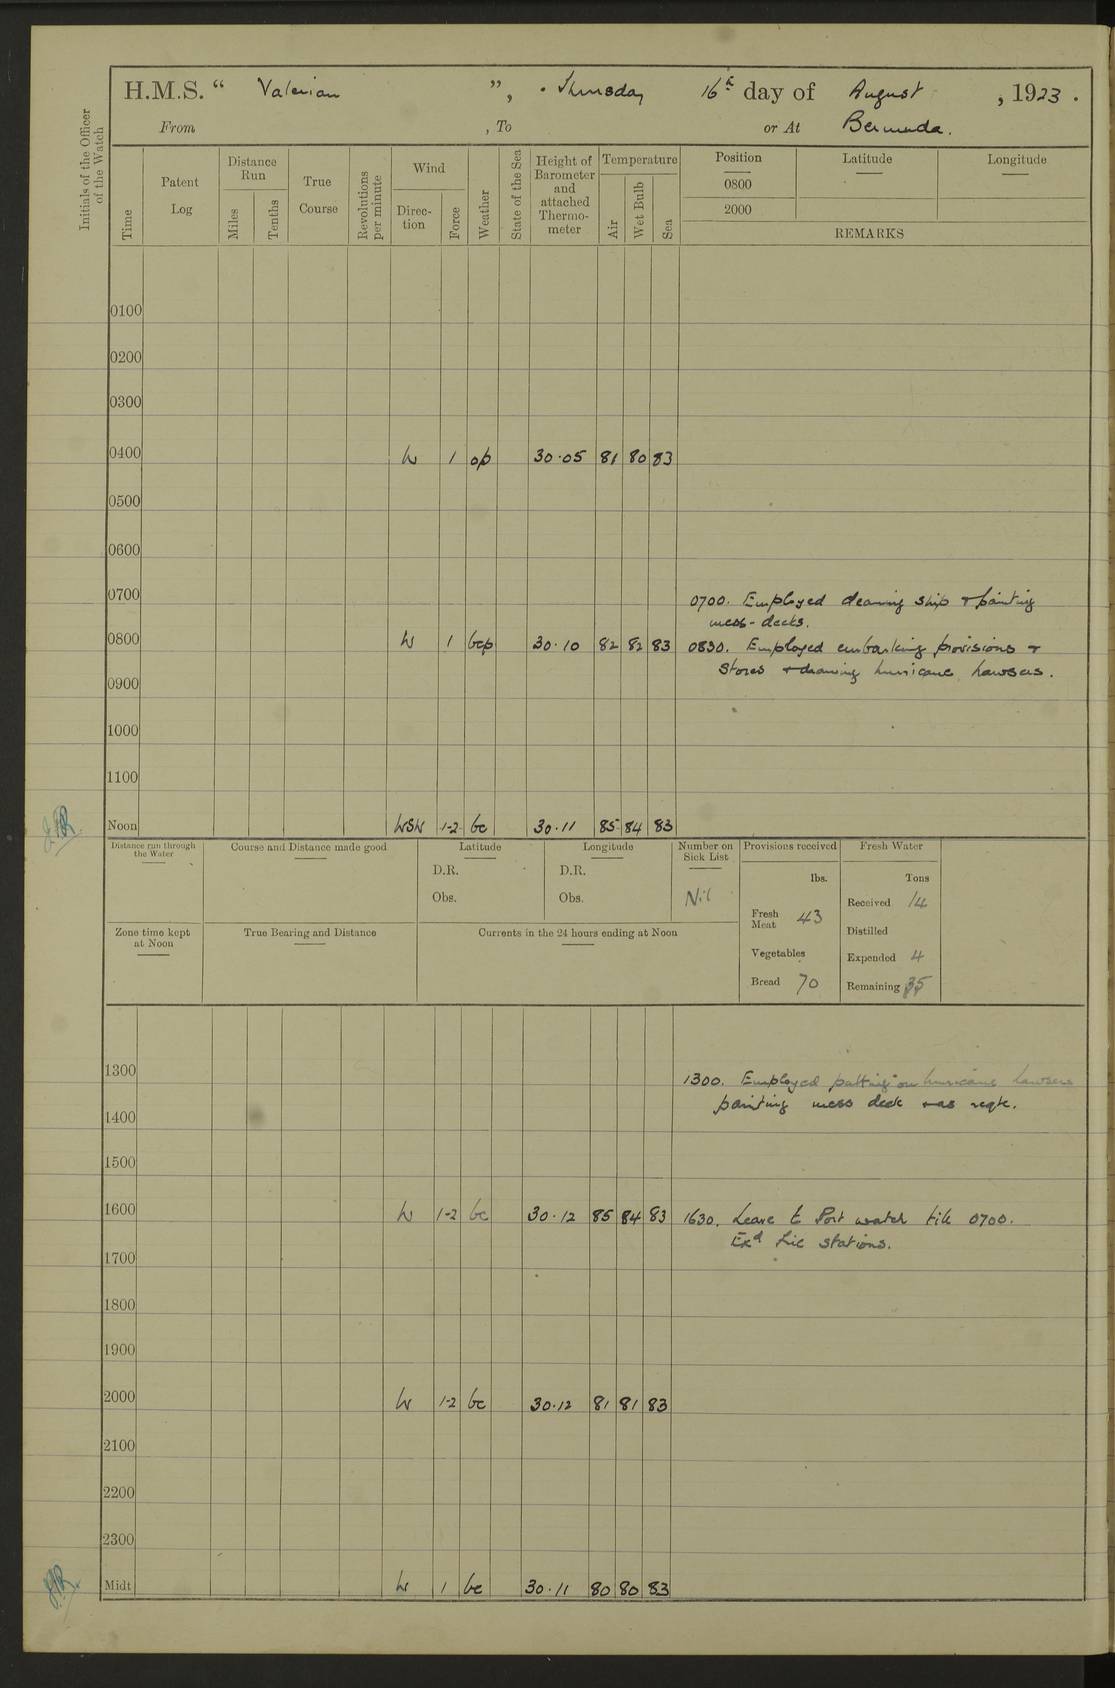 H.M.S. “ Valerian ”, Thursday 16th day of August, 1923.
From , To or At Bermuda.
Initials of the Officer of the Watch
Time
Patent Log
Distance Run
Miles
Tenths
True Course
Revolutions per minute
Wind
Direc-tion
Force
Weather
State of the Sea
Height of Barometer and attached Thermo-meter
Temperature
Air
Wet Bulb
Sea
Position
0800
2000
Latitude
Longitude
REMARKS
0100
0200
0300
0400 W 1 op 30.05 81 80 83
0500
0600
0700 0700. Employed cleaning ship & painting
mess-decks.
0800 W 1 bcp 30.10 82 82 83 0830. Employed embarking provisions &
Stores & drawing hurricane hawsers.
0900
1000
1100
Noon WSW 1-2 bc 30.11 85 84 83
Distance run through the Water
Course and Distance made good
Latitude
D.R.
Obs.
Longitude
D.R.
Obs.
Number on Sick List
Nil
Provisions received
lbs.
Fresh Meat 43
Vegetables
Bread 70
Fresh Water
Tons
Received 14
Distilled
Expended 4
Remaining 35
Zone time kept at Noon
True Bearing and Distance
Currents in the 24 hours ending at Noon
1300 1300. Employed putting on hurricane hawsers
painting mess deck & as reqte.
1400
1500
1600 W 1-2 bc 30.12 85 84 83 1630. Leave to Port watch till 0700.
Exd stations.
1700
1800
1900
2000 W 1-2 bc 30.12 81 81 83
2100
2200
2300
Midt W 1 bc 30.11 80 80 83